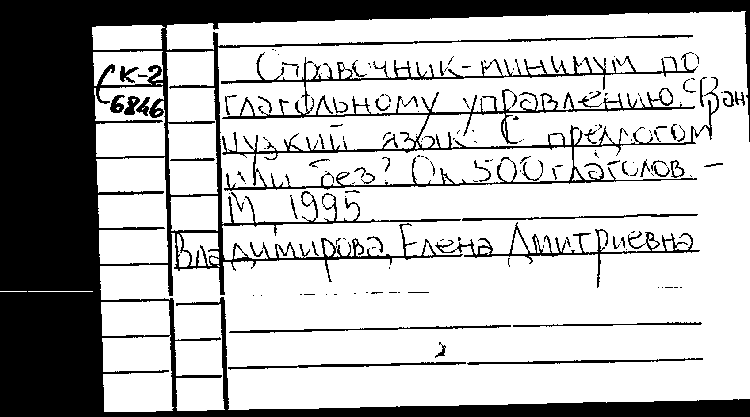 Справочник-минимум по
СК-2
6846
глагольному управлению. Фран-
цузкий язык: С предлогом
или без? Ок. 500 глаголов. –
М, 1995.
Владимирова, Елена Дмитриевна
2